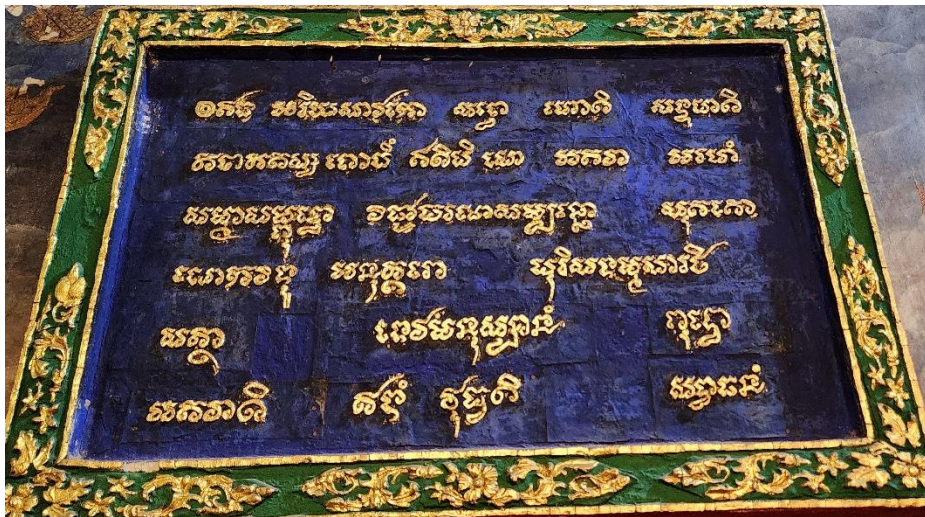 អរិយសាវកោ សទ្ធោ ហោតិ សទ្ទហតិ
តថាគតស្ស ពោធិំ ឥតិបិ សោ ភគវា អរហំ
សម្មាសម្ពុទ្ធោ វិជ្ជាចរណសម្បន្នោ សុគតោ
លោកវិទូ អនុត្តរោ បុរិសទម្មសារថិ
សត្ថា ទេវមនុស្សានំ ពុទ្ធោ
ភគវាតិ ឥទំ វុច្ចតិ សទ្ធាធនំ